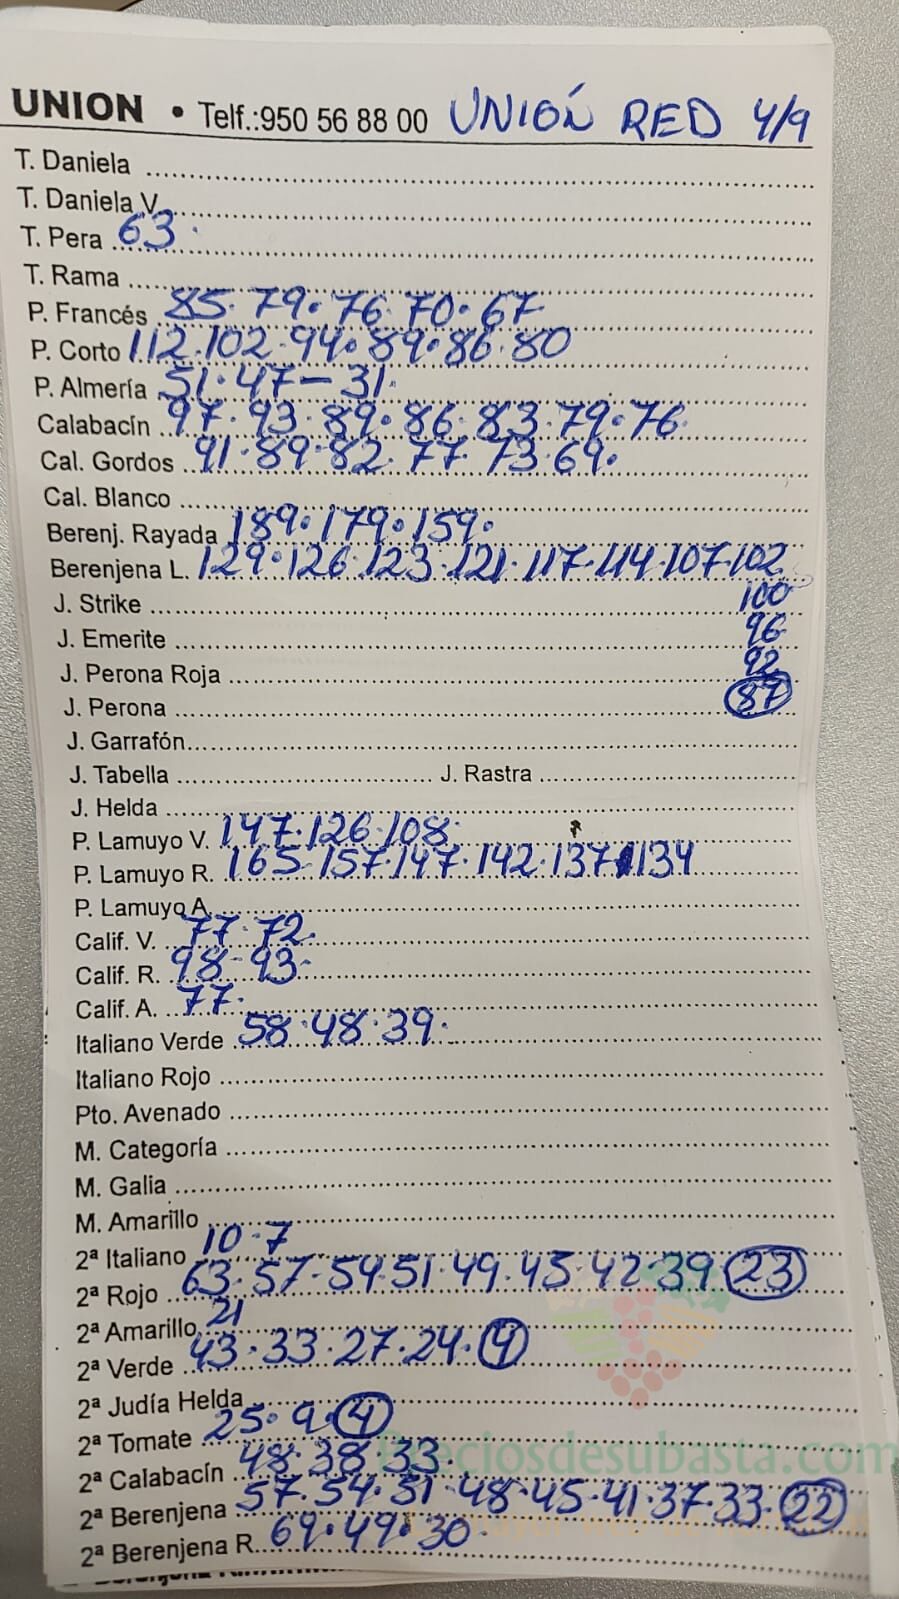 UNION • Telf.:950 56 88 00 UNIÓN RED 4/9
T. Daniela
T. Daniela V.
T. Pera 63.
T. Rama
P. Francés 85. 79. 76. 70. 67
P. Corto 112. 102. 94. 89. 86. 80
P. Almería 51. 47 - 31.
Calabacín 97. 93. 89. 86. 83. 79. 76.
Cal. Gordos 91. 89. 82. 77. 73. 69.
Cal. Blanco
Berenj. Rayada 189. 179. 159.
Berenjena L. 129. 126. 123. 121. 117. 114. 107. 102
J. Strike 100
J. Emerite 96
J. Perona Roja 92
J. Perona 87
J. Garrafón
J. Tabella J. Rastra
J. Helda
P. Lamuyo V. 147. 126. 108.
P. Lamuyo R. 165. 157. 147. 142. 137. 134
P. Lamuyo A.
Calif. V. 77. 72.
Calif. R. 98. 93.
Calif. A. 77.
Italiano Verde 58. 48. 39.
Italiano Rojo
Pto. Avenado
M. Categoría
M. Galia
M. Amarillo
2ª Italiano 10. 7
2ª Rojo 63. 57. 54. 51. 49. 45. 42. 39. 23
2ª Amarillo 21
2ª Verde 43. 33. 27. 24. 4
2ª Judía Helda
2ª Tomate 25. 9. 4
2ª Calabacín 48. 38. 33
Preciosdesubasta.com
2ª Berenjena 57. 54. 51. 48. 45. 41. 37. 33. 22
2ª Berenjena R. 69. 49. 30.